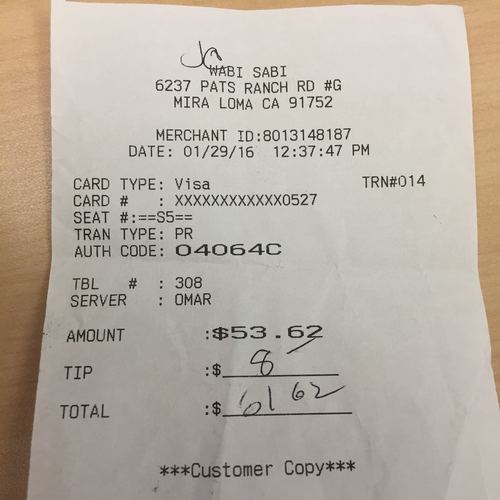 WABI SABI
6237 PATS RANCH RD #G
MIRA LOMA CA 91752
MERCHANT ID:8013148187
DATE: 01/29/16 12:37:47 PM
CARD TYPE: Visa TRN#014
CARD # : XXXXXXXXXXXX0527
SEAT #:==S5==
TRAN TYPE: PR
AUTH CODE: 04064C
TBL # : 308
SERVER : OMAR
AMOUNT :$53.62
TIP :$ 8
TOTAL :$ 61 62
***Customer Copy***